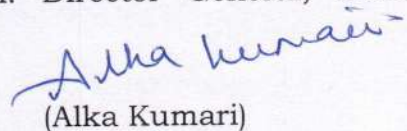 Director General,
Alka Kumari
(Alka Kumari)